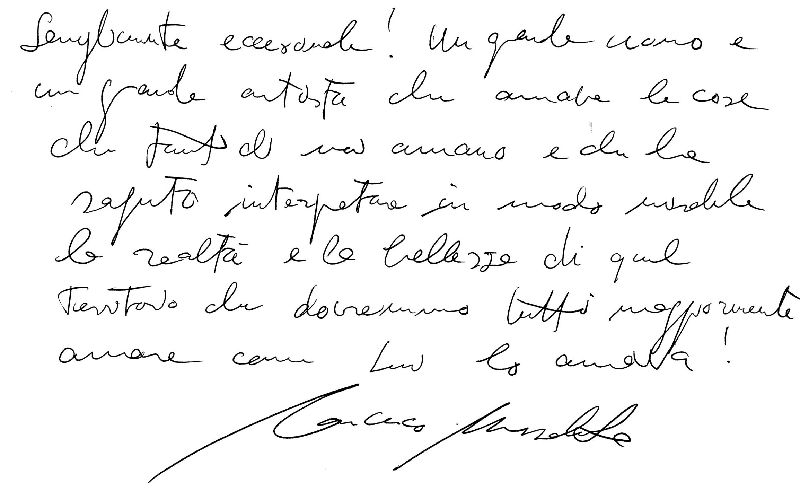 Semplicemente eccezionale! Un grande uomo e
un grande artista che amava le cose
che tanti di noi amano e che ha
saputo interpretare in modo mirabile
la realtà e la bellezza di quel
territorio che dovremmo tutti maggiormente
amare come Lui lo amava!